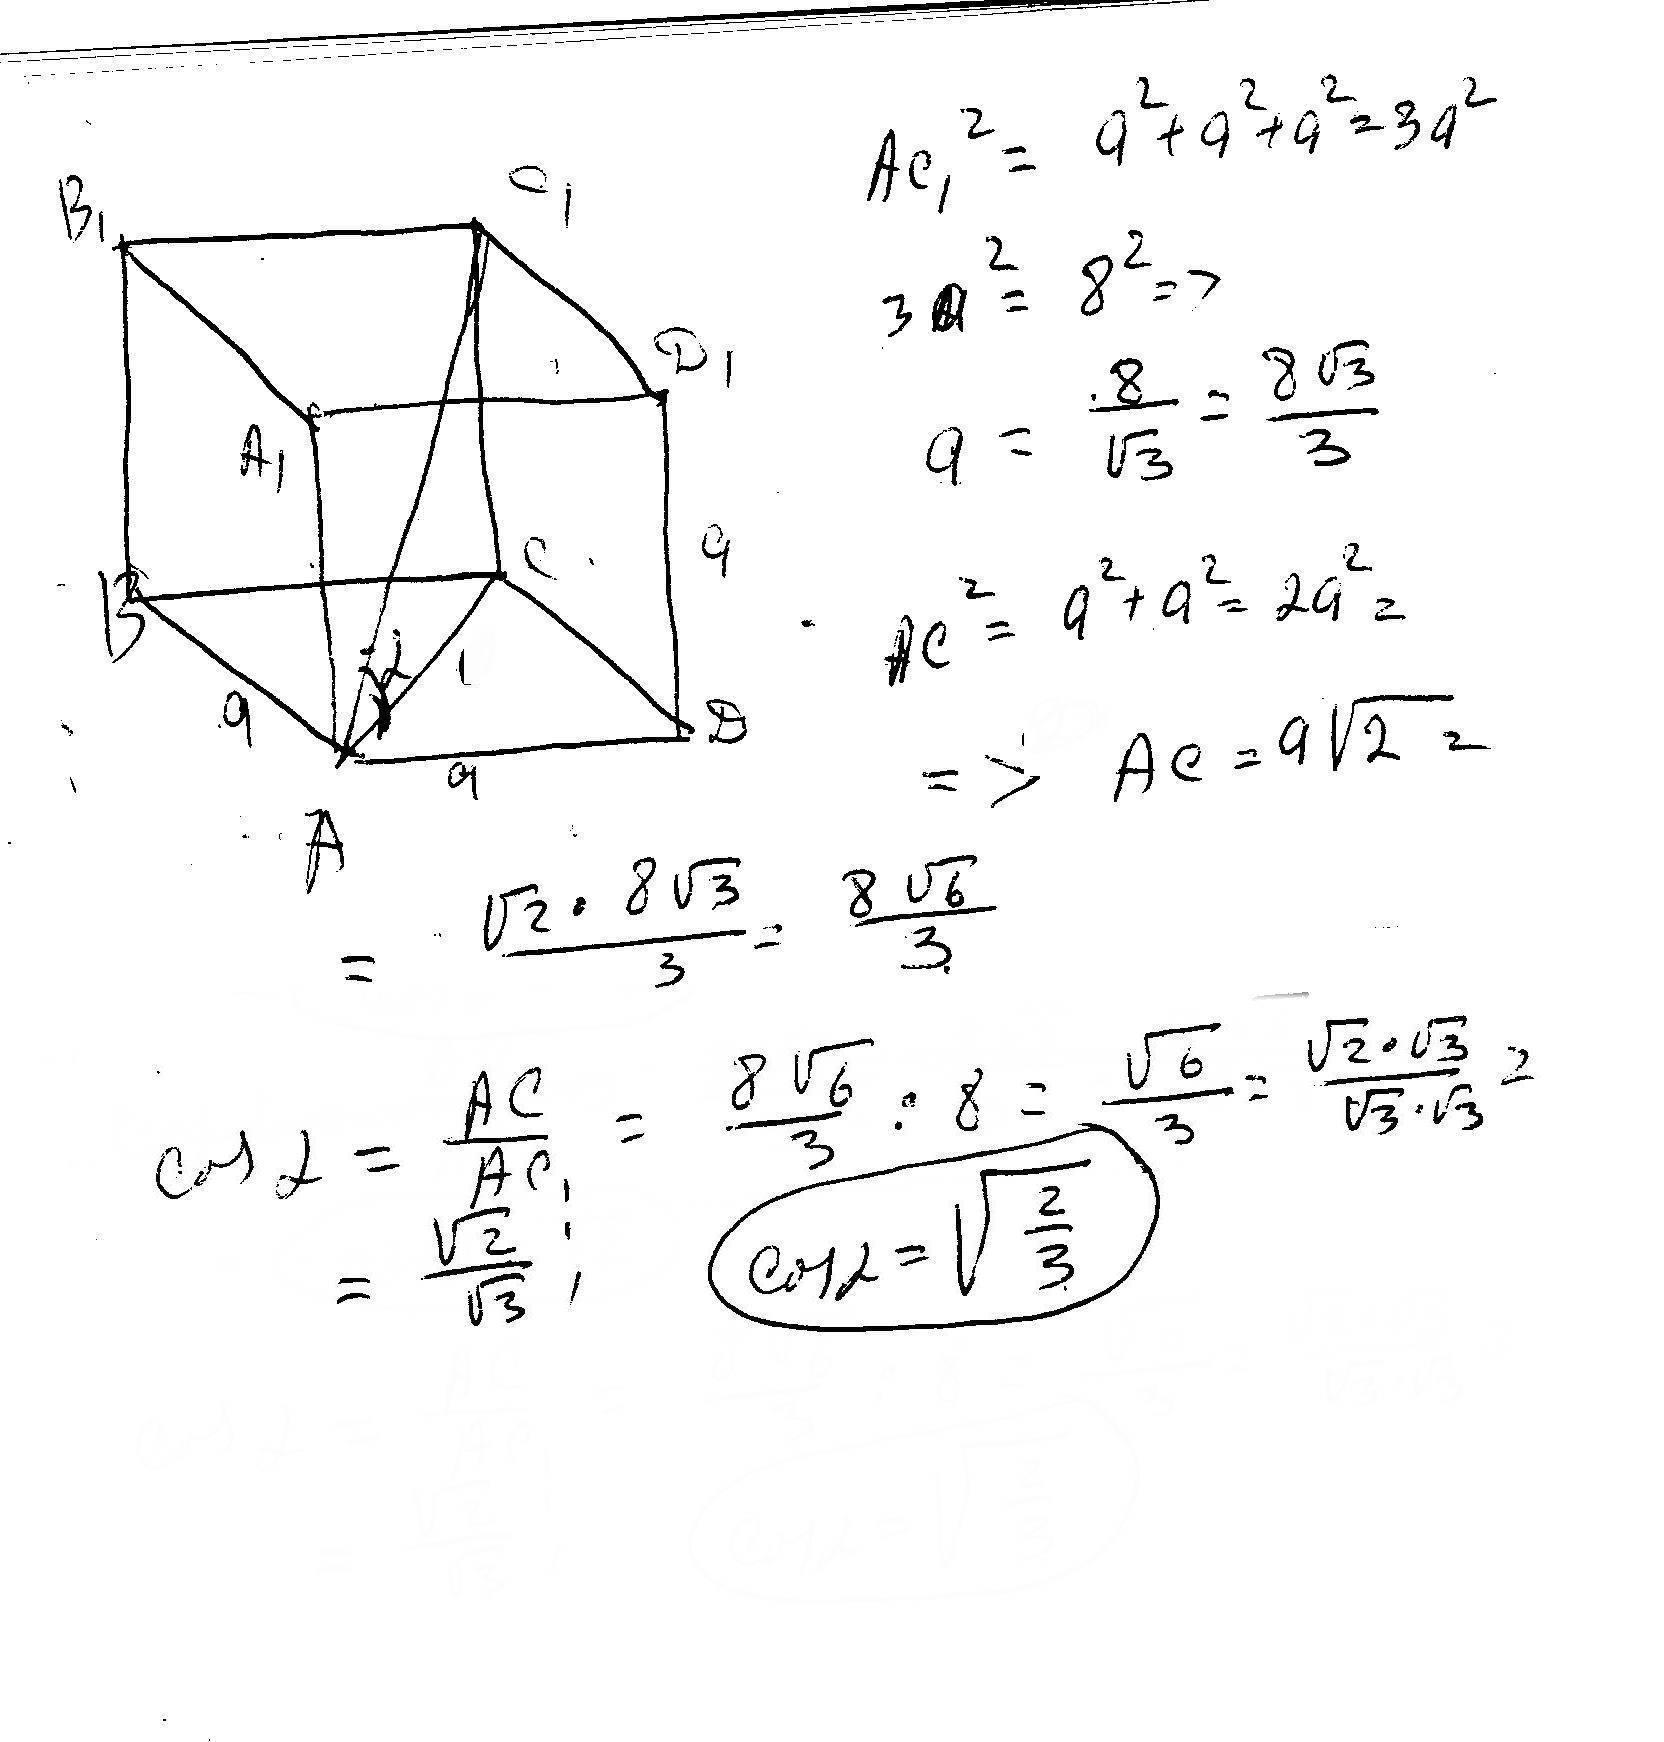 B₁
C₁
D₁
A₁
B
C
D
A
a
a
a
α
AC₁² = a² + a² + a² = 3a²
3a² = 8² =>
a = 8/√3 = 8√3/3
AC² = a² + a² = 2a² =
=> AC = a√2 =
= √2 · 8√3/3 = 8√6/3
cos α = AC/AC₁ = 8√6/3 : 8 = √6/3 = √2·√3/√3·√3 =
= √2/√3 ; cos α = √(2/3)